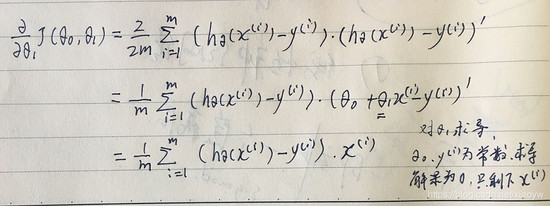 ∂/∂θ₁ J(θ₀,θ₁) = 2/2m Σᵢ₌₁ᵐ (hθ(x⁽ⁱ⁾)-y⁽ⁱ⁾)·(hθ(x⁽ⁱ⁾)-y⁽ⁱ⁾)′
= 1/m Σᵢ₌₁ᵐ (hθ(x⁽ⁱ⁾)-y⁽ⁱ⁾)·(θ₀+θ₁x⁽ⁱ⁾-y⁽ⁱ⁾)′
= 1/m Σᵢ₌₁ᵐ (hθ(x⁽ⁱ⁾)-y⁽ⁱ⁾)·x⁽ⁱ⁾
对θ₁求导,
θ₀、y⁽ⁱ⁾为常数,求导
结果为0,只剩下x⁽ⁱ⁾